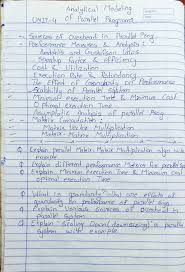 Analytical Modeling
UNIT-4 of Parallel Programs
- Sources of Overhead in Parallel Prog.
- Performance Measures & Analysis:
Amdahl's and Gustafson's Laws
Speedup factor & efficiency
Cost & Utilization
Execution Rate & Redundancy
- The Effect of Granularity on Performance
- Scalability of Parallel System
- Minimum execution time & Minimum Cost
Optimal Execution Time
- Asymptotic Analysis of Parallel Prog
- Matrix Computation:
Matrix Vector Multiplication
Matrix-Matrix Multiplication
Q Explain Parallel Matrix Matrix Multiplication with
example
Q Explain different performance Metrics for parallel Sys
Q Explain Minimum Execution Time & Minimum Cost
Optimal execution time
Q What is granularity? What are effects of
granularity on performance of parallel sys
Q Explain Various Sources of overhead in
parallel System
Q Explain "Scaling Down (downsizing) a parallel
System" with example